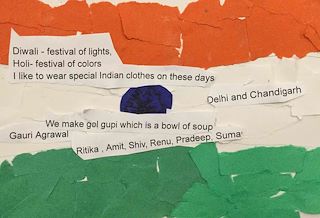 Diwali - festival of lights,
Holi- festival of colors
I like to wear special Indian clothes on these days
Delhi and Chandigarh
We make gol gupi which is a bowl of soup
Gauri Agrawal
Ritika , Amit, Shiv, Renu, Pradeep, Suma